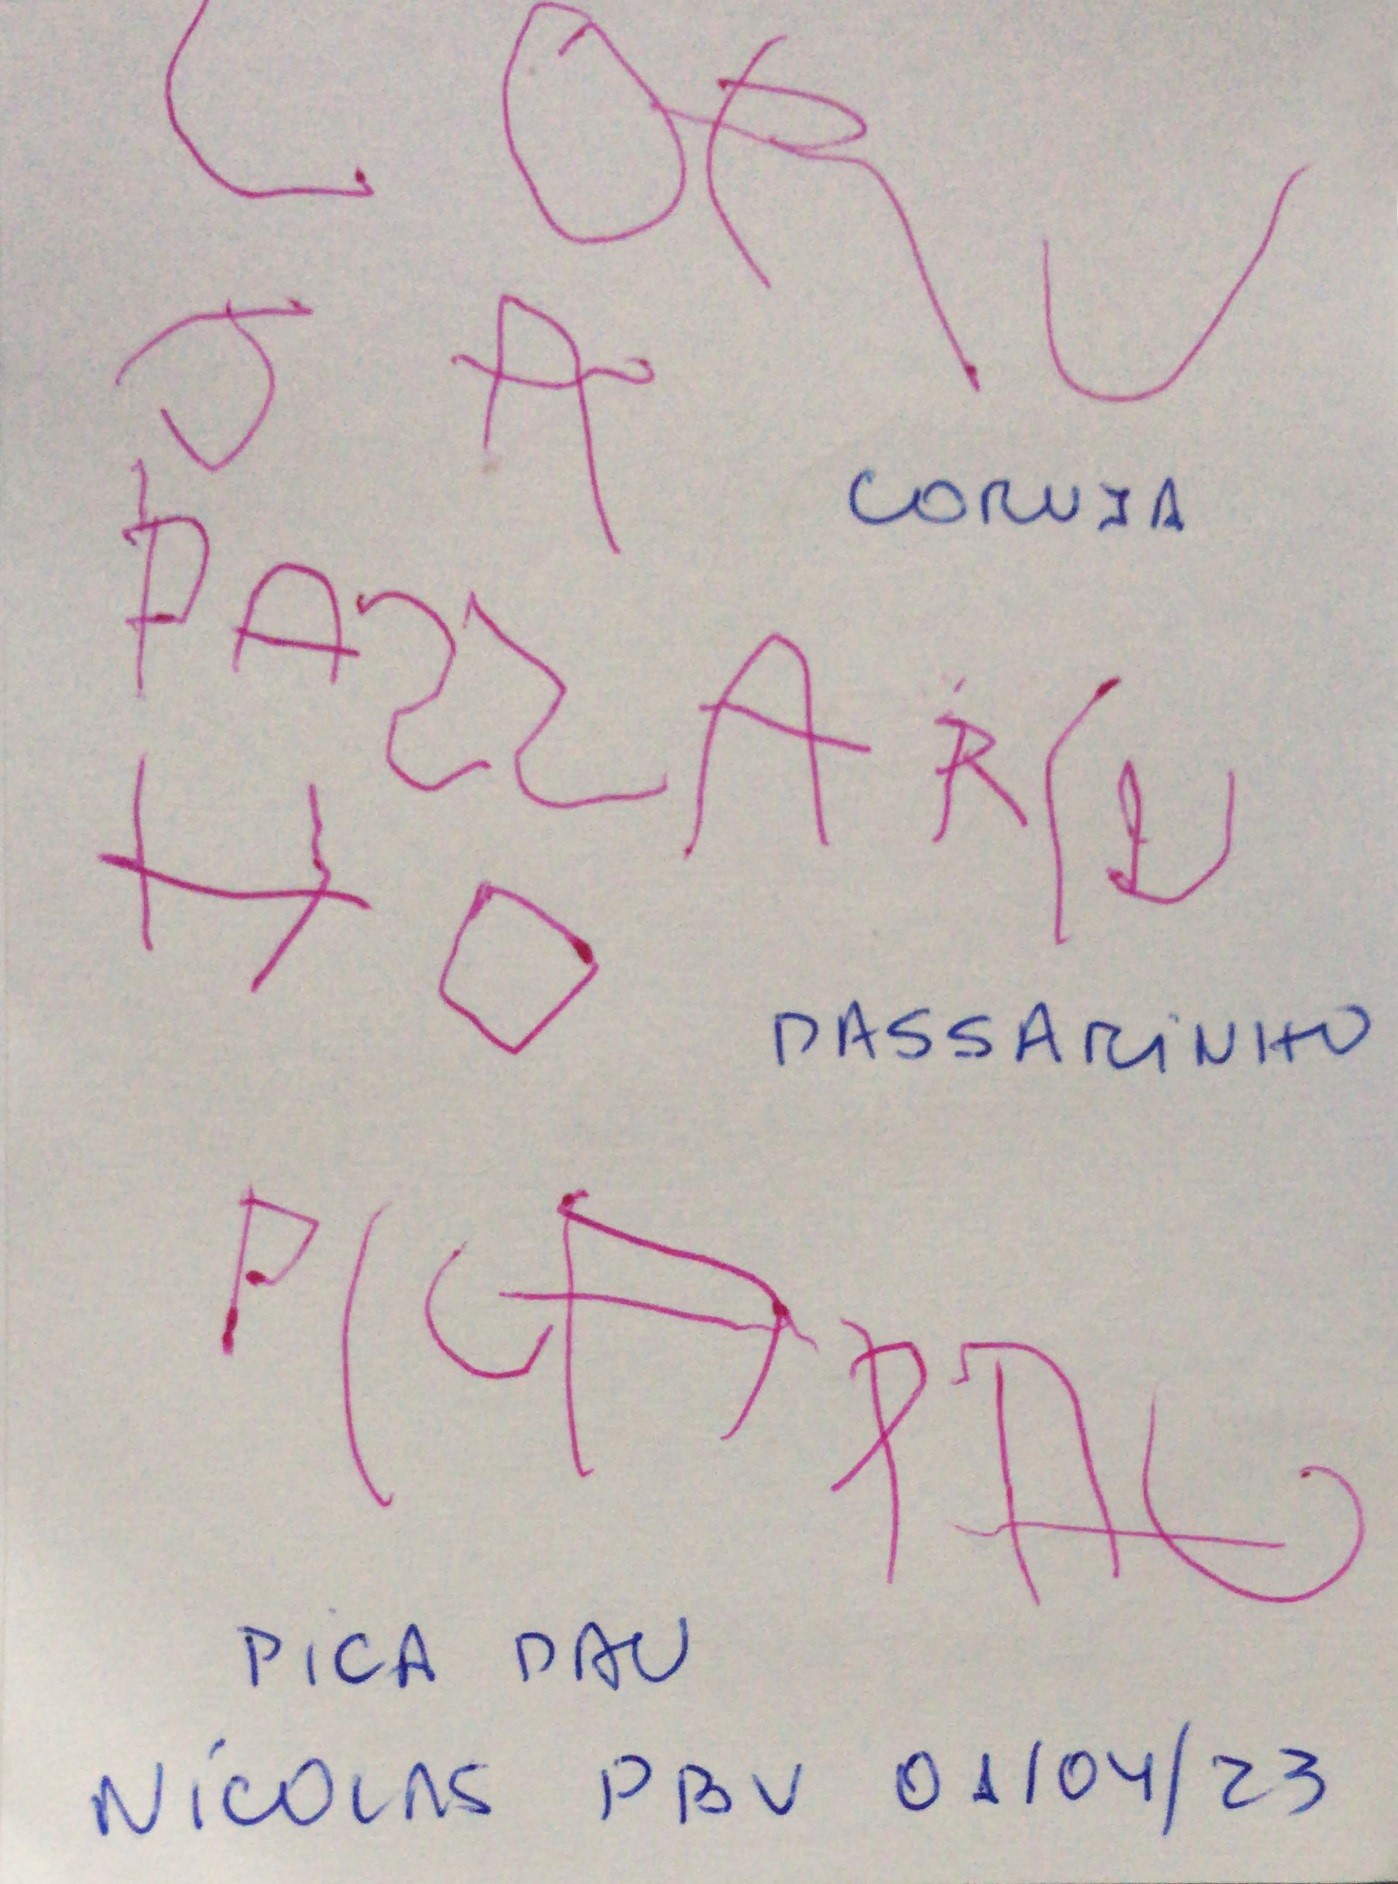 CORU
JA
CORUJA
PASSARIN
HO
PASSARINHO
PICA PAU
PICA PAU
NÍCOLAS PBV 01/04/23